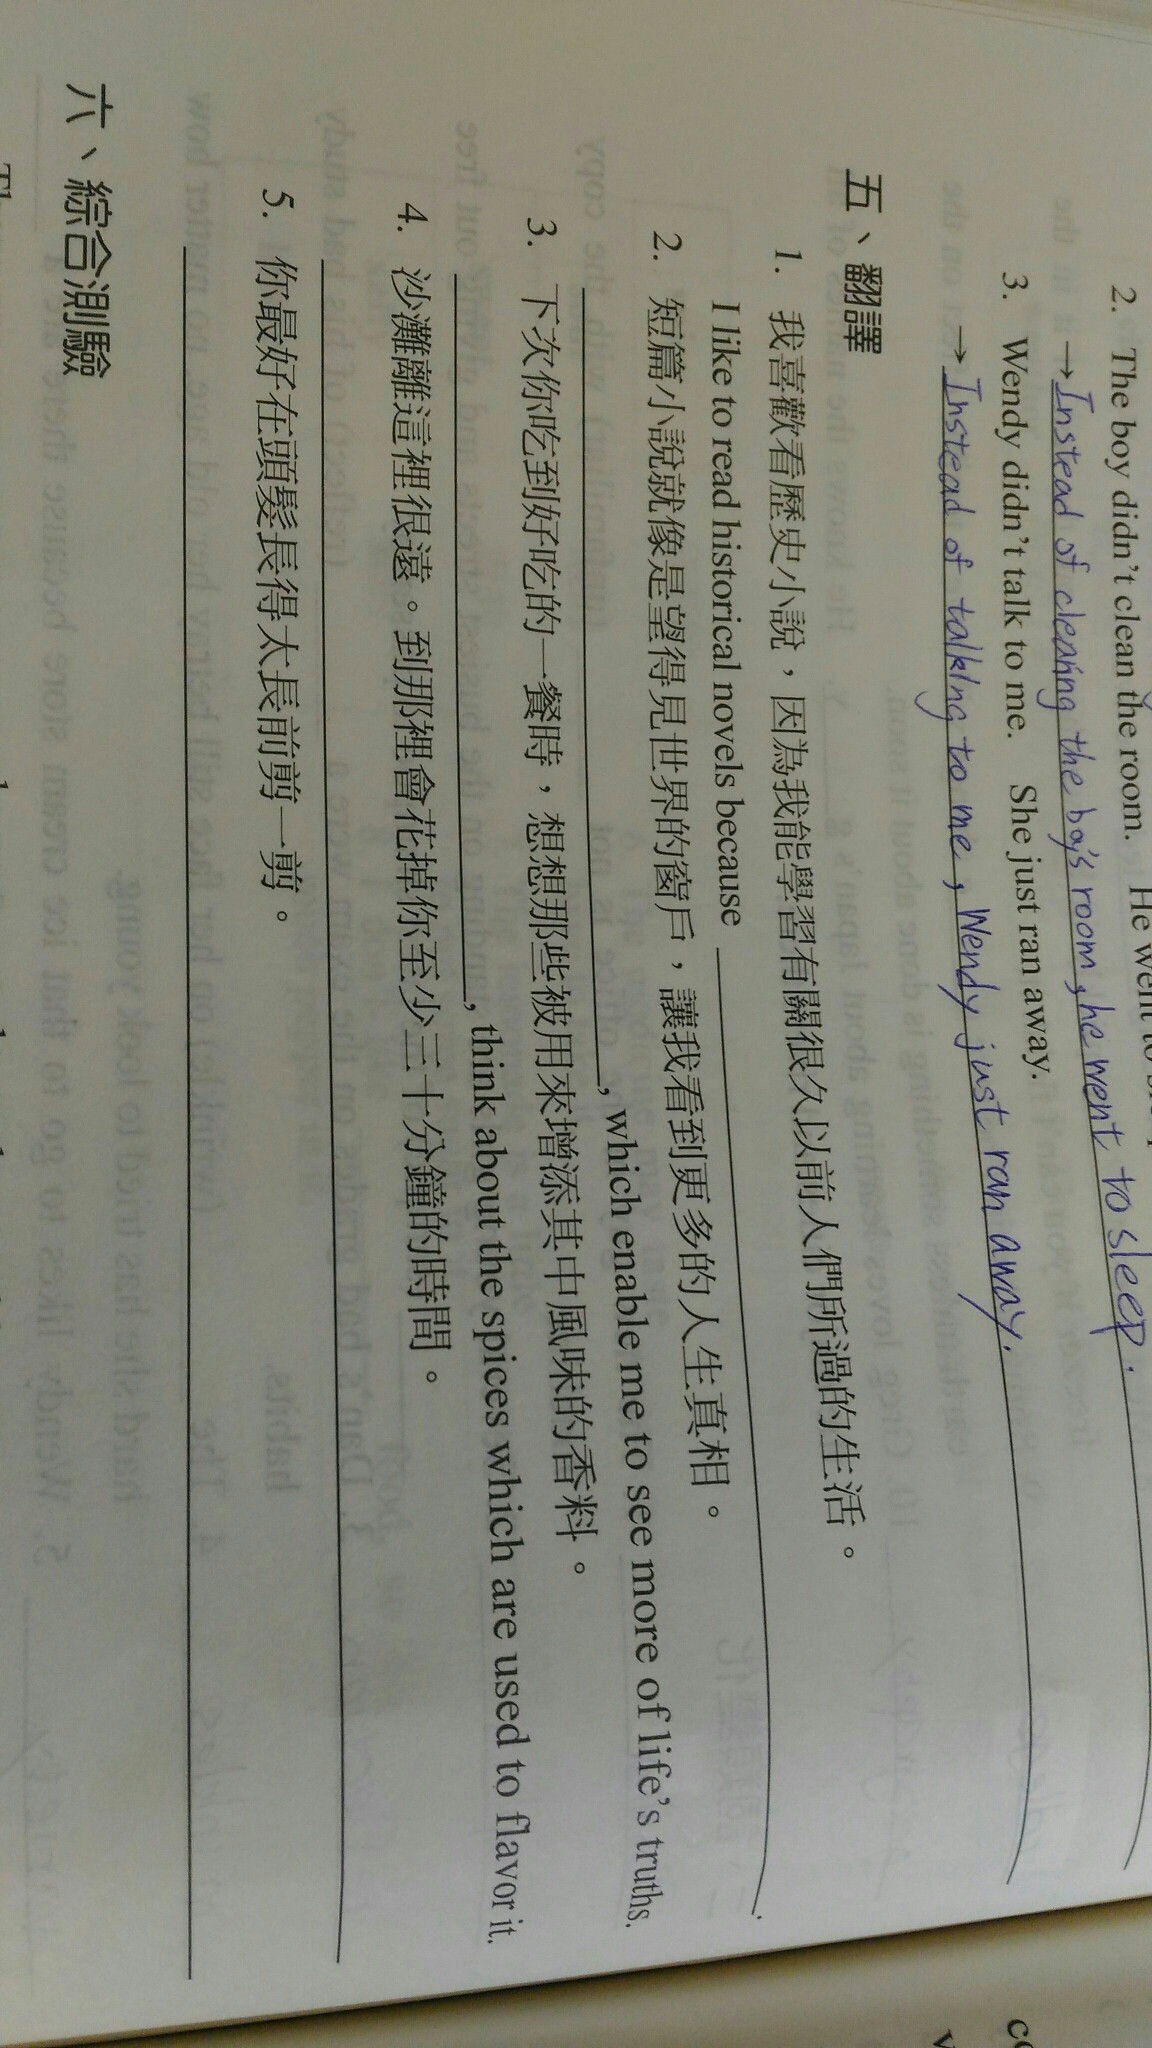 2. The boy didn't clean the room. He went to
→ Instead of cleaning the boy's room, he went to sleep.
3. Wendy didn't talk to me. She just ran away.
→ Instead of talking to me, Wendy just ran away.
五、翻譯
1. 我喜歡看歷史小說，因為我能學習有關很久以前人們所過的生活。
I like to read historical novels because ______.
2. 短篇小說就像是望得見世界的窗戶，讓我看到更多的人生真相。
______, which enable me to see more of life's truths.
3. 下次你吃到好吃的一餐時，想想那些被用來增添其中風味的香料。
______, think about the spices which are used to flavor it.
4. 沙灘離這裡很遠。到那裡會花掉你至少三十分鐘的時間。
5. 你最好在頭髮長得太長前剪一剪。
六、綜合測驗